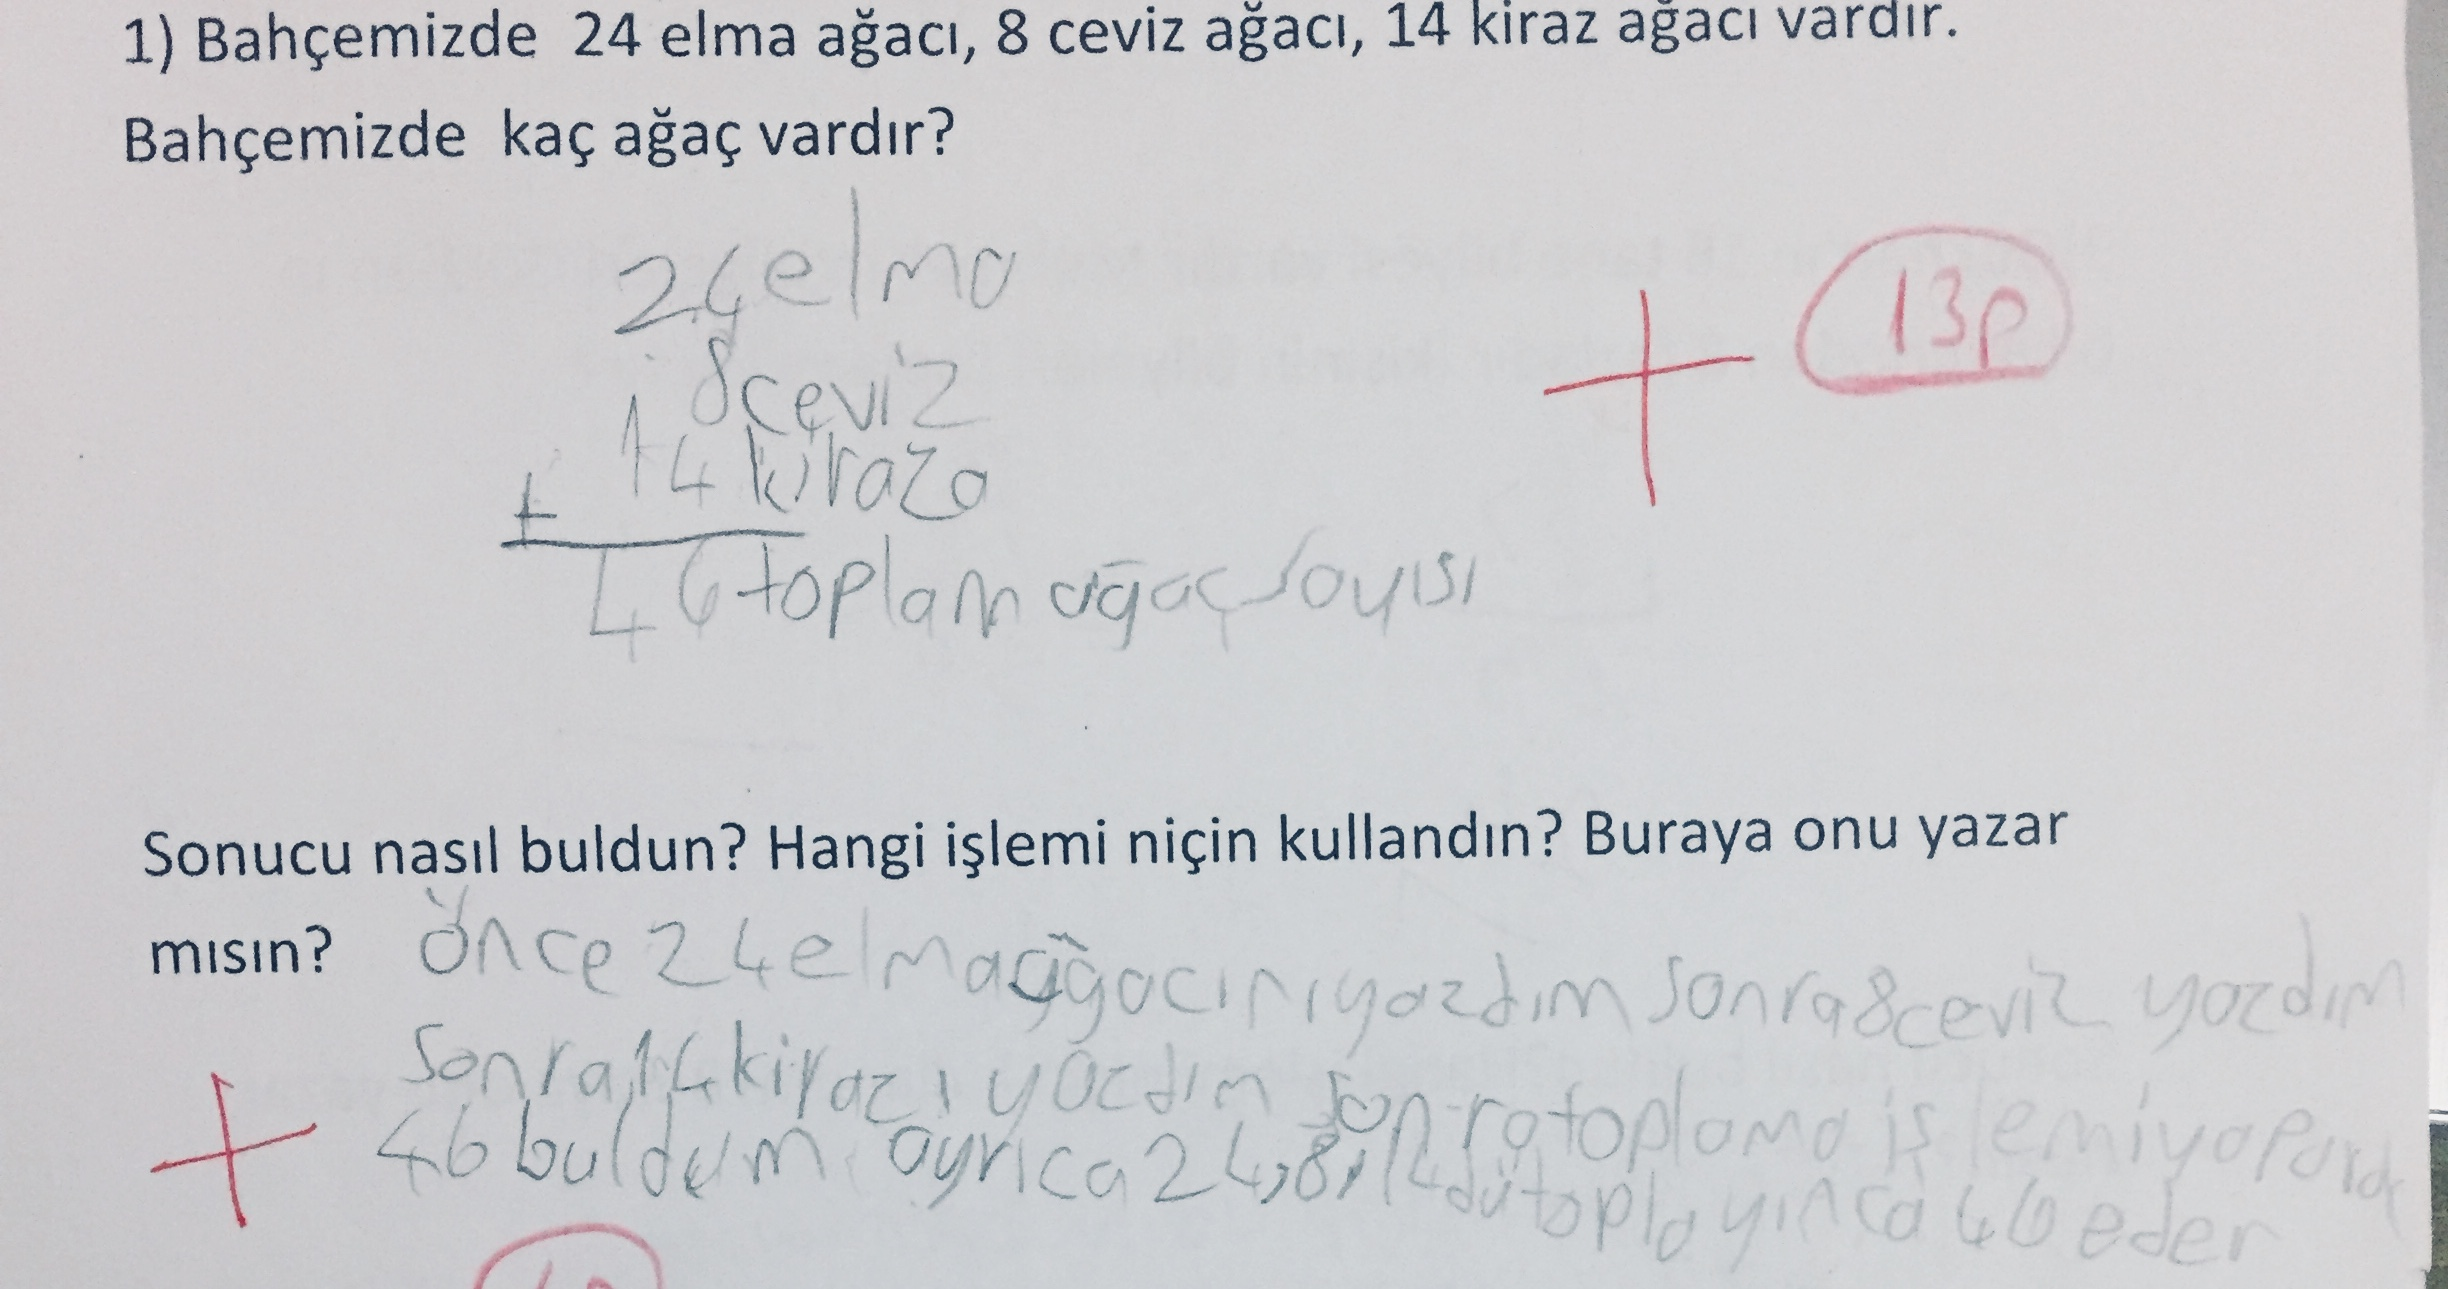 1) Bahçemizde 24 elma ağacı, 8 ceviz ağacı, 14 kiraz ağacı vardır.
Bahçemizde kaç ağaç vardır?
24 elma
8 ceviz
14 kiraza
+
46 toplam ağaç sayısı
13p
Sonucu nasıl buldun? Hangi işlemi niçin kullandın? Buraya onu yazar
mısın? Önce 24 elma ağacını yazdım sonra 8 ceviz yozdım
sonra 14 kirazı yazdım sonra toplama işlemi yaparak
46 buldum ayrıca 24,8,14dü toplayınca 46 eder